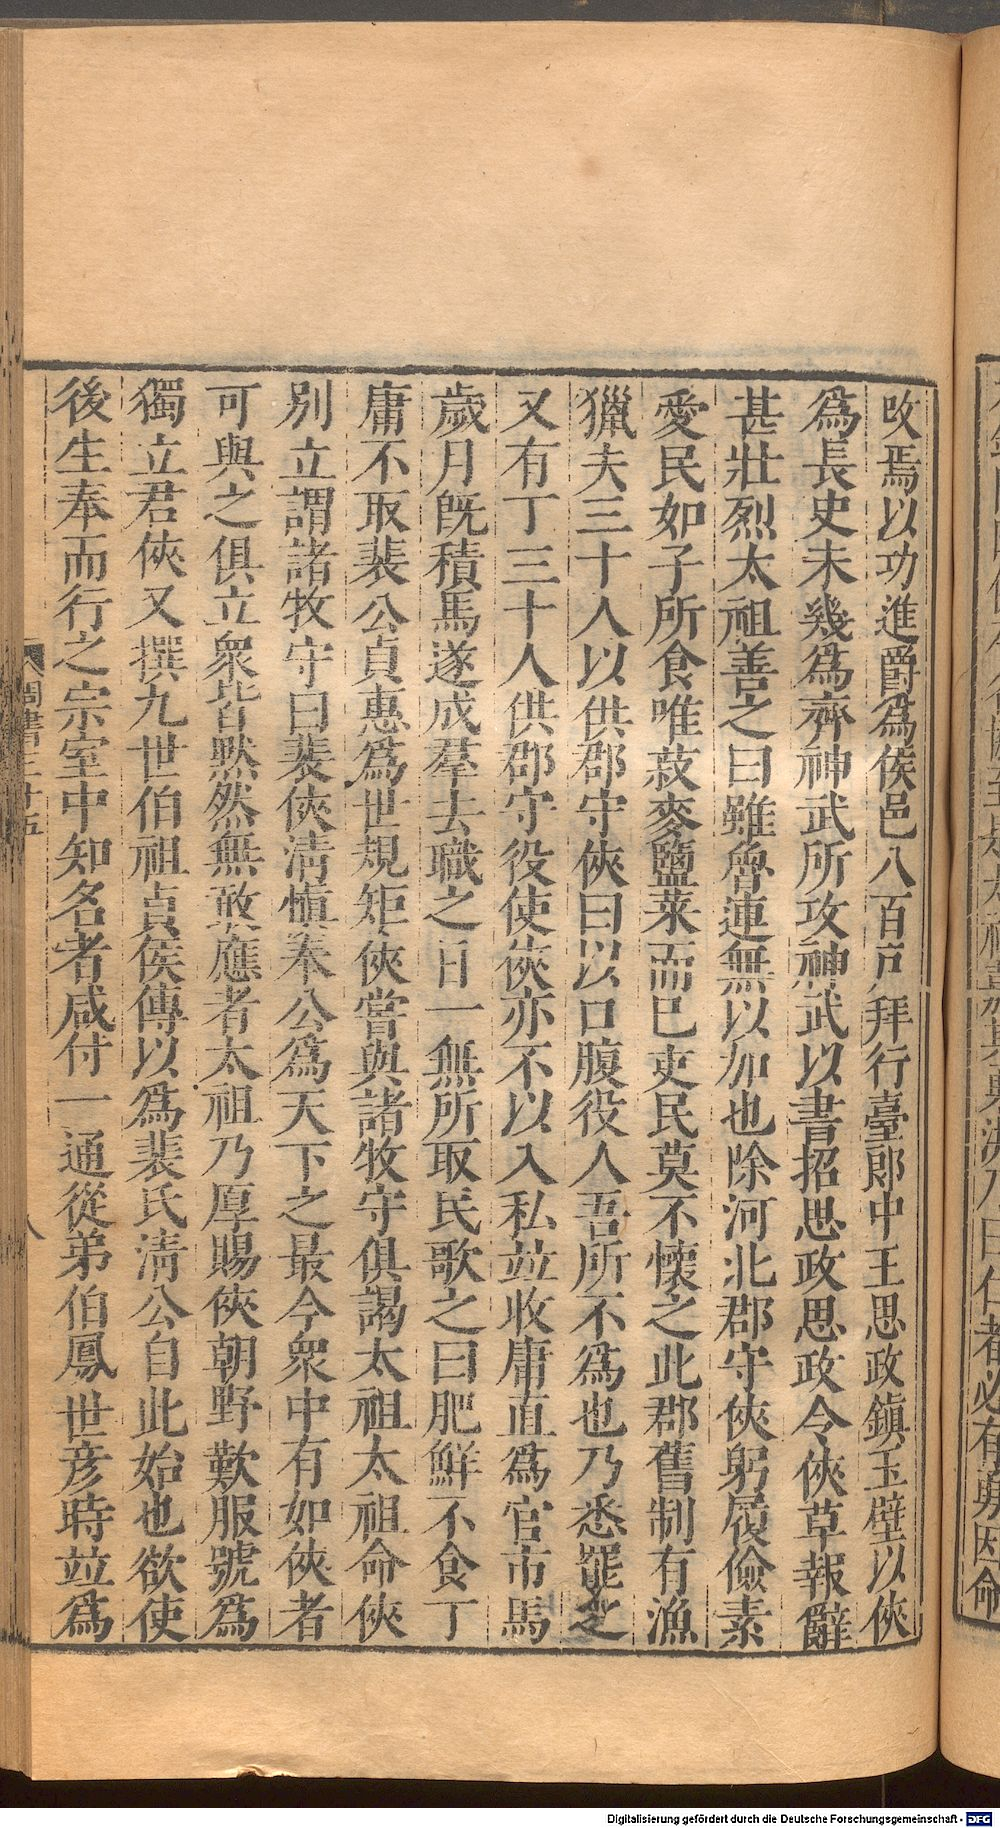 攺焉以功進爵爲侯邑八百戸拜行臺郎中王思政鎮玉壁以俠
爲長史未幾爲齊神武所攻神武以書招思政思政令俠草報辭
甚壯烈太祖善之曰雖魯連無以加也除河北郡守俠躬履儉素
愛民如子所食唯菽麥鹽菜而巳吏民莫不懷之此郡舊制有漁
獵夫三十人以供郡守俠曰以口腹役人吾所不爲也乃悉罷之
又有丁三十人供郡守役使俠亦不以入私竝收庸直爲官市馬
歲月旣積馬遂成羣去職之日一無所取民歌之曰肥鮮不食丁
庸不取裴公貞惠爲世規矩俠嘗與諸牧守俱謁太祖太祖命俠
別立謂諸牧守曰裴俠清愼奉公爲天下之最今衆中有如俠者
可與之俱立衆皆默然無敢應者太祖乃厚賜俠朝野歎服號爲
獨立君俠又撰九世伯祖貞侯傳以爲裴氏清公自此始也欲使
後生奉而行之宗室中知名者咸付一通從弟伯鳳世彦時竝爲
周書三十五
八
Digitalisierung gefördert durch die Deutsche Forschungsgemeinschaft - DFG